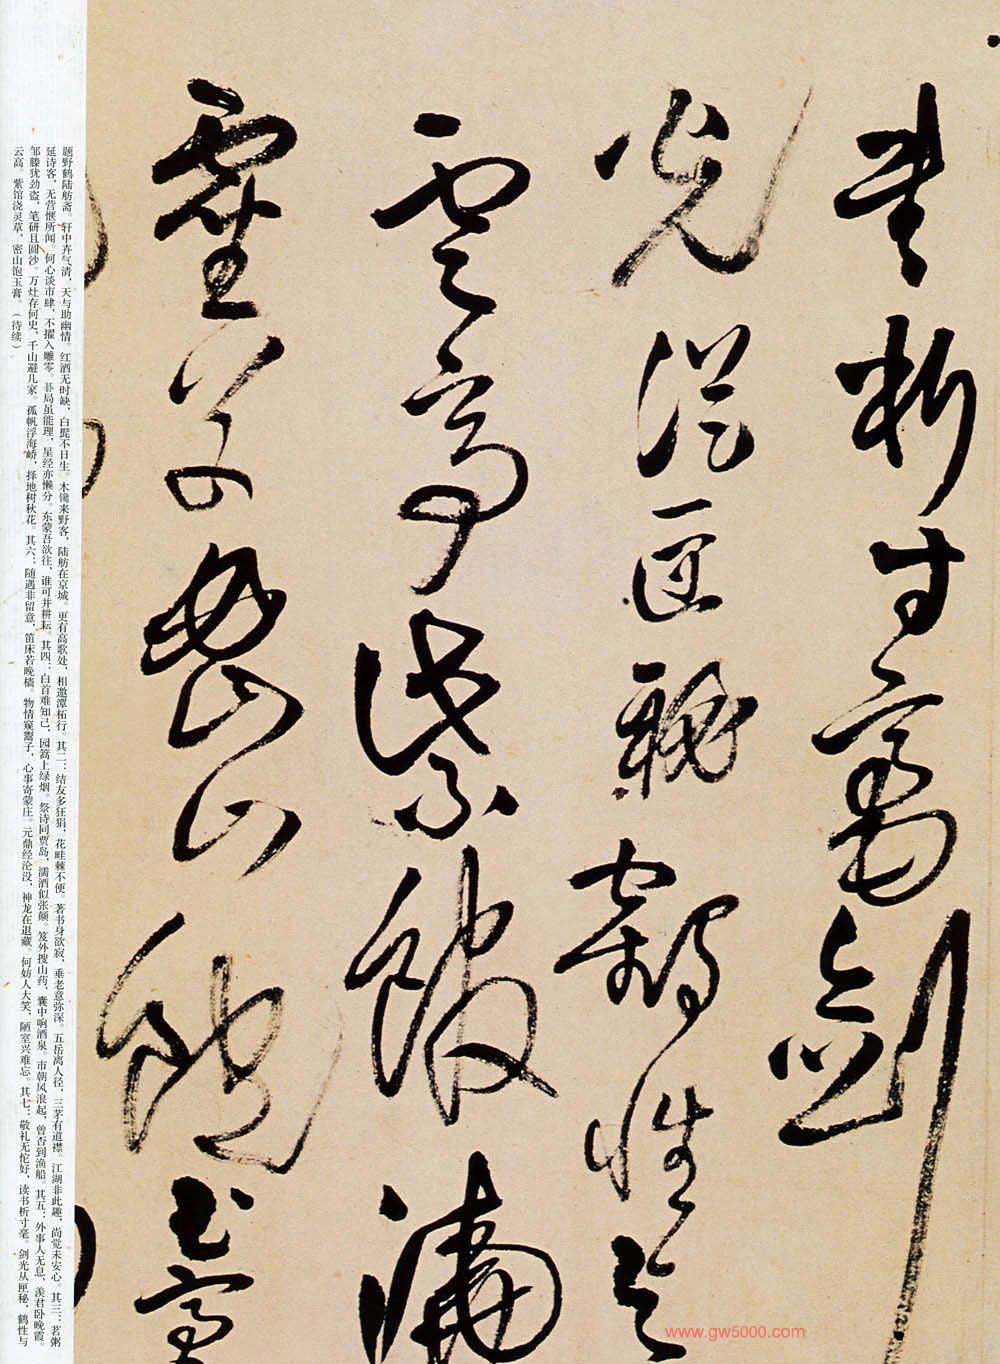 书析寸毫剑
光从匣秘鹤性与
云高紫馆浇
灵草密山饱玉膏
题野鹤陆舫斋。轩中卉气清，天与助幽情。红酒无时缺，白髭不日生。木镵来野客，陆舫在京城。更有高歌处，相邀潭柘行。其二：结友多狂狷，花畦棘不便。著书身欲寂，垂老意弥深。五岳离人径，三茅有道襟。江湖非此趣，尚觉未安心。其三：茗粥
延诗客，无营惬所闻。何心谈市肆，不擢入雕零。棋局虽能理，星经亦懒分。东蒙吾欲往，谁可并耕耘。其四：白首难知己，园篱上绿烟。祭诗同贾岛，濡酒似张颠。笈外搜山药，囊中响酒泉。市朝风浪起，曾否到渔船。其五：外事人无息，羡君卧晚霞。
邹滕犹劲盗，笔研且圆沙。万灶存何史，千山避几家。孤帆浮海峤，择地树秋花。其六：随遇非留意，笛床若晚樯。物情窥鬻子，心事寄蒙庄。元鼎经沦没，神龙在退藏。何妨人大笑，陋室兴难忘。其七：敬礼无佗好，读书析寸毫。剑光从匣秘，鹤性与
云高。紫馆浇灵草，密山饱玉膏。（待续）
www.gw5000.com